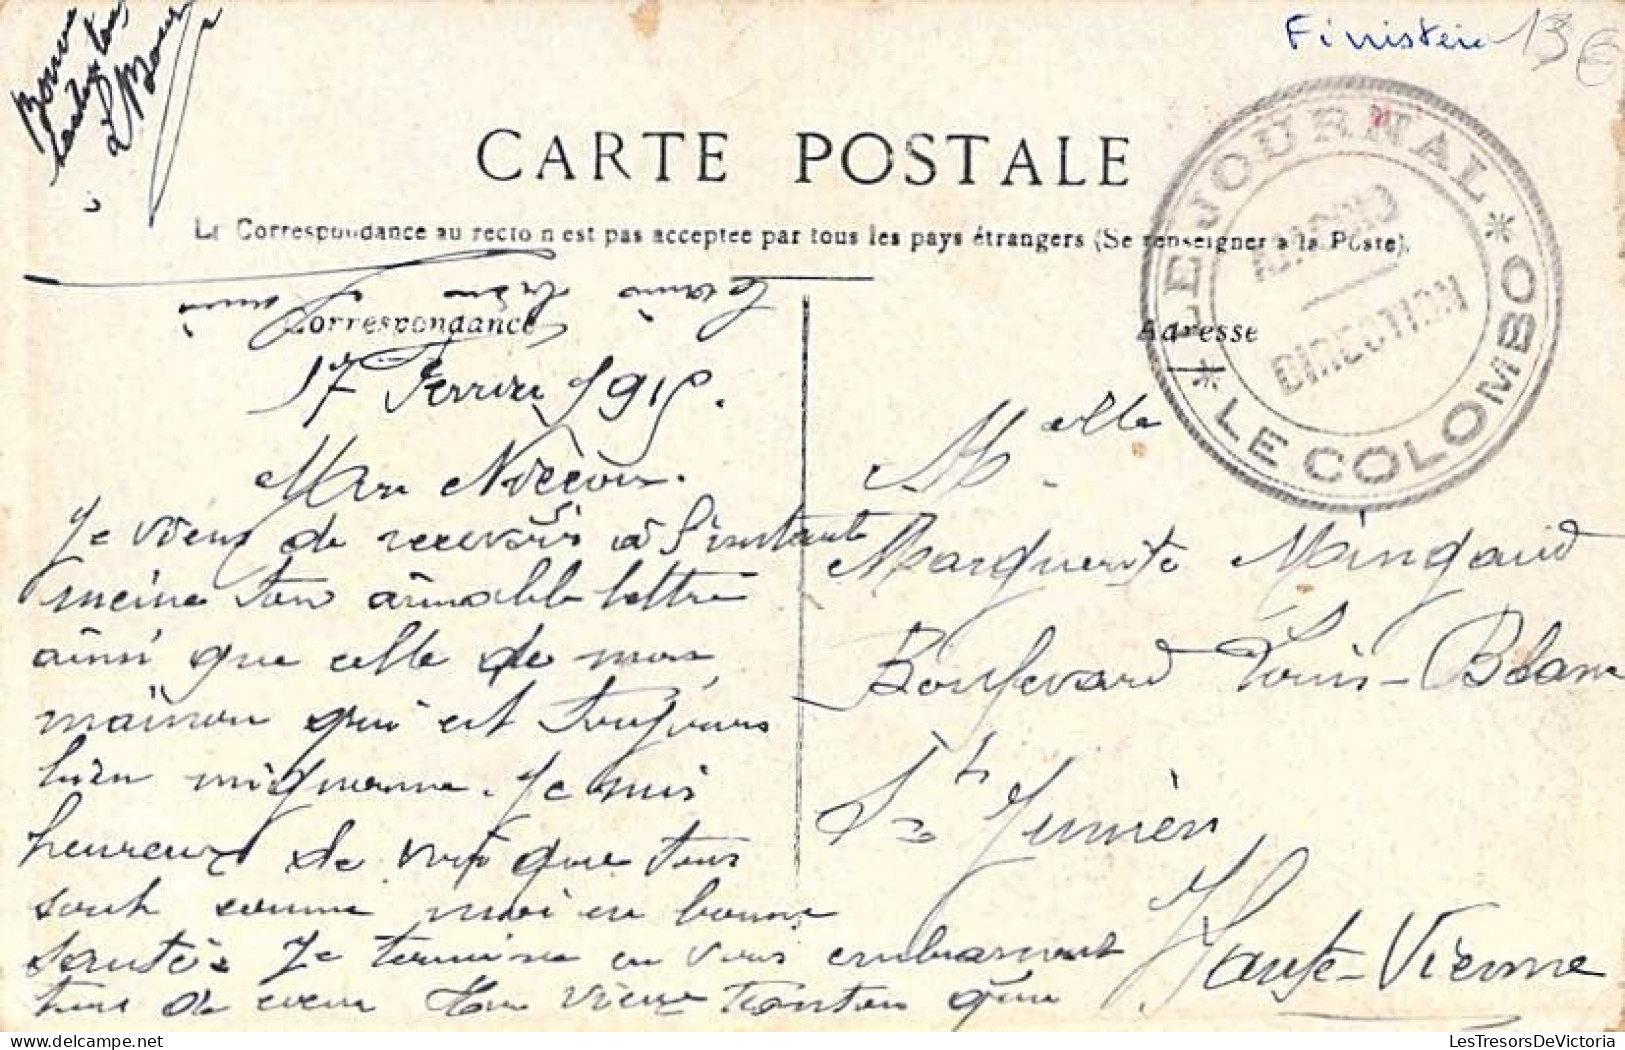 Bonne
Finistère 13€
CARTE POSTALE
La Correspondance au recto n'est pas acceptée par tous les pays étrangers (Se renseigner à la Poste).
LE JOURNAL * LE COLOMBO *
RADIO
DIRECTION
Correspondance
Adresse
17 Fevrier 1915.
Ma Nièce
Je viens de recevoir à l'instant
meine ton aimable lettre
ainsi que celle de mon
maison qui est toujours
bien mignonne. Je suis
heureux de voir que tous
sont comme moi en bonne
santée Je termine en vous embrassant
tous de coeur Ton vieux Tonton que
Melle
Marguerite Mingaud
Boulevard Louis-Blanc
St Junièn
Haute-Vienne
LesTresorsDeVictoria